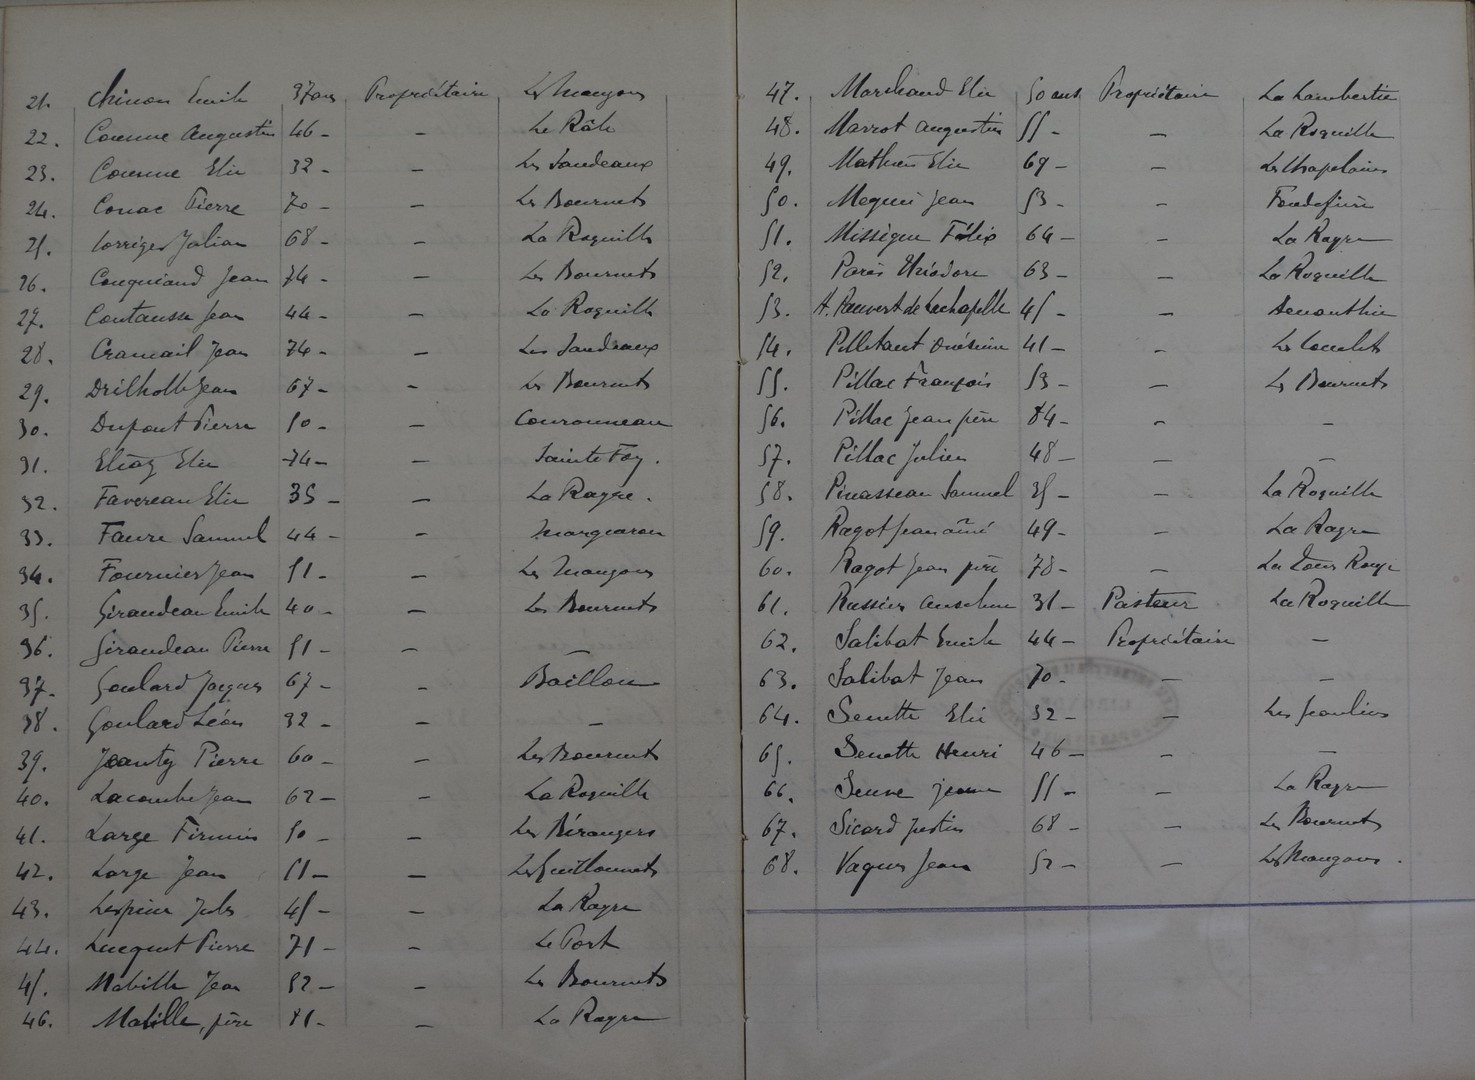 21. Chinon Emile 37 ans Propriétaire Les Mangons
22. Coeunne Augustin 46 - - Le Râle
23. Coeunne Elie 32 - - Les Jandeaux
24. Conac Pierre 70 - - Les Bournets
25. Julian 68 - - La Roquille
26. Couquiaud Jean 74 - - Les Bournets
27. Coutausse Jean 44 - - La Roquille
28. Cramail Jean 74 - - Les Jandeaux
29. Drilholle Jean 67 - - Les Bournets
30. Dupont Pierre 50 - - Couronneau
31. Eliaz Elie 74 - - Sainte Foy.
32. Favereau Elie 35 - - La Rayre.
33. Faure Samuel 44 - - Margueron
34. Fournier Jean 51 - - Les Mangons
35. Giraudeau Emile 40 - - Les Bournets
36. Giraudeau Pierre 51 - - -
37. Goulard Jacques 67 - - Boillou
38. Goulard Léon 32 - - -
39. Jeanty Pierre 60 - - Les Bournets
40. Lacombe Jean 62 - - La Roquille
41. Large Firmin 50 - - Les Bérangers
42. Large Jean 51 - - Les Guillonnets
43. Lespine Jules 45 - - La Rayre
44. Luquet Pierre 71 - - Le Port
45. Mabille Jean 52 - - Les Bournets
46. Mabille, père 81 - - La Rayre
47. Marchand Elie 50 ans Propriétaire La Lambertie
48. Marrot Augustin 55 - - La Roquille
49. Mathieu Elie 69 - - Les Chapelains
50. Jean 53 - - Fondefière
51. Missègue Félix 64 - - La Rayre
52. Parès Théodore 63 - - La Roquille
53. H. Pauvert de Lachapelle 45 - -
54. Pilletant Onésime 41 - -
55. Pillac François 53 - - Les Bournets
56. Pillac Jean père 84 - - -
57. Pillac Julien 48 - - -
58. Pinasseau Samuel 35 - - La Roquille
59. Ragot Jean aîné 49 - - La Rayre
60. Ragot Jean père 78 - - La Tour Rouge
61. Rassier Anselme 31 - Pasteur La Roquille
62. Salibat Emile 44 - Propriétaire -
63. Salibat Jean 70 - - -
64. Senette Elie 32 - - Les Jeanlins
65. Senette Henri 46 - - -
66. Seuve 55 - - La Rayre
67. Sicard Justin 68 - - Les Bournets
68. Vaques Jean 52 - - Les Mangons.